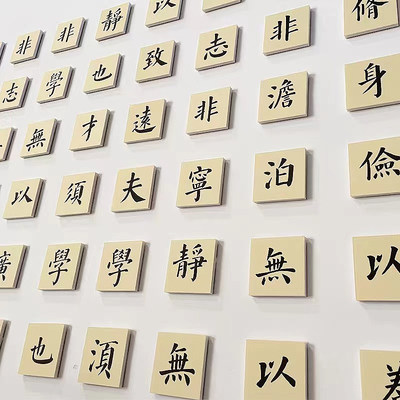 脩身儉以
非澹泊無以
志非寧靜無
以致遠夫學湏
靜也才須學也
非學無以廣
非志